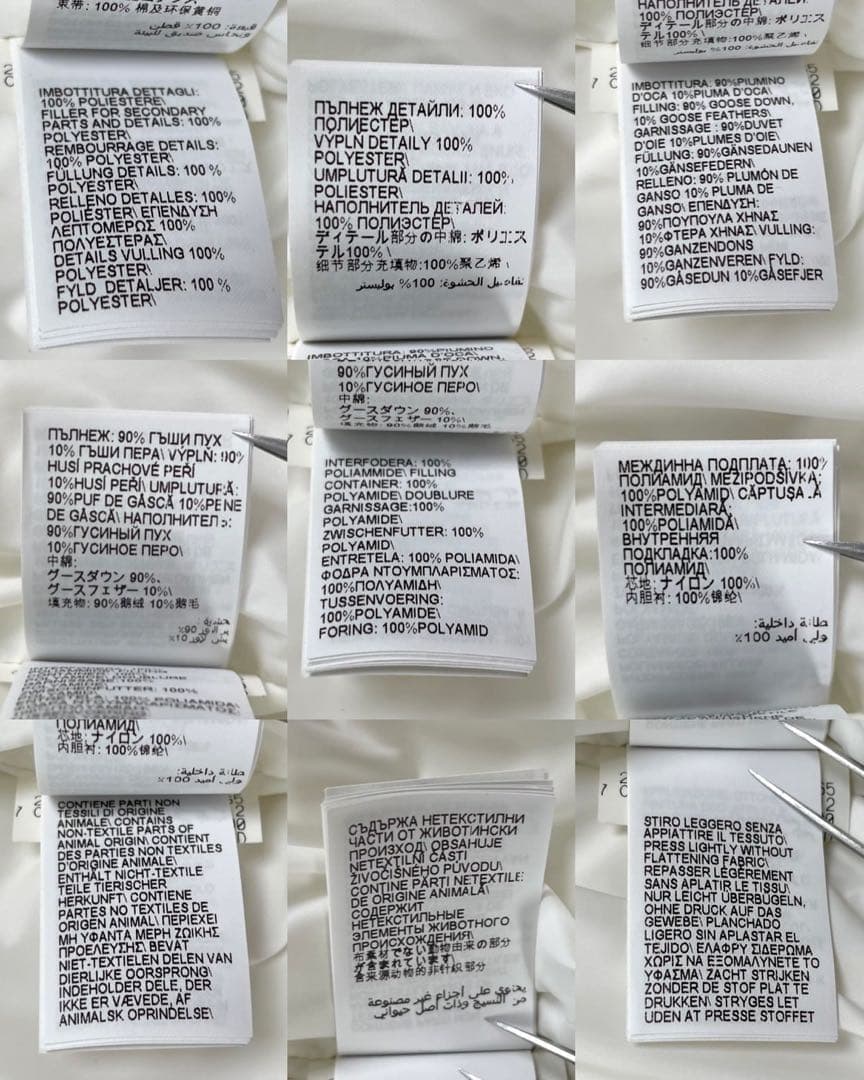 束带: 100% 棉及环保黄铜
IMBOTTITURA DETTAGLI:
100% POLIESTERE\
FILLER FOR SECONDARY
PARTS AND DETAILS: 100%
POLYESTER\
REMBOURRAGE DETAILS:
100% POLYESTER\
FÜLLUNG DETAILS: 100 %
POLYESTER\
RELLENO DETALLES: 100%
POLIÉSTER\ ΕΠΕΝΔΥΣΗ
ΛΕΠΤΟΜΕΡΩΣ 100%
ΠΟΛΥΕΣΤΕΡΑΣ\
DETAILS VULLING 100%
POLYESTER\
FYLD DETALJER: 100 %
POLYESTER\
ПЪЛНЕЖ ДЕТАЙЛИ: 100%
ПОЛИЕСТЕР\
VÝPLŇ DETAILY 100%
POLYESTER\
UMPLUTURĂ DETALII: 100%
POLIESTER\
НАПОЛНИТЕЛЬ ДЕТАЛЕЙ:
100% ПОЛИЭСТЕР\
ディテール部分の中綿: ポリエス
テル100% \
细节部分充填物:100%聚乙烯 \
تفاصيل الحشوة: 100% بوليستر
IMBOTTITURA: 90%PIUMINO
100% ПОЛИЭСТЕР\
ディテール部分の中綿: ポリエス
テル100%\
细节部分充填物:100%聚乙烯
IMBOTTITURA: 90%PIUMINO
D'OCA 10%PIUMA D'OCA\
FILLING: 90% GOOSE DOWN,
10% GOOSE FEATHERS\
GARNISSAGE : 90%DUVET
D'OIE 10%PLUMES D'OIE\
FÜLLUNG: 90%GÄNSEDAUNEN
10%GÄNSEFEDERN\
RELLENO: 90% PLUMÓN DE
GANSO 10% PLUMA DE
GANSO\ ΕΠΕΝΔΥΣΗ:
90%ΠΟΥΠΟΥΛΑ ΧΗΝΑΣ
10%ΦΤΕΡΑ ΧΗΝΑΣ\ VULLING:
90%GANZENDONS
10%GANZENVEREN\ FYLD:
90%GÅSEDUN 10%GÅSEFJER
ПЪЛНЕЖ: 90% ГЪШИ ПУХ
10% ГЪШИ ПЕРА\ VÝPLŇ: 90%
HUSÍ PRACHOVÉ PEŘÍ
10%HUSÍ PEŘÍ\ UMPLUTURĂ:
90%PUF DE GÂSCĂ 10%PENE
DE GÂSCĂ\ НАПОЛНИТЕЛЬ:
90%ГУСИНЫЙ ПУХ
10%ГУСИНОЕ ПЕРО\
中綿:
グースダウン 90%、
グースフェザー 10%\
填充物: 90%鹅绒 10%鹅毛
90%ГУСИНЫЙ ПУХ
10%ГУСИНОЕ ПЕРО\
中綿:
グースダウン 90%、
グースフェザー 10%\
填充物: 90%鹅绒 10%鹅毛
INTERFODERA: 100%
POLIAMMIDE\ FILLING
CONTAINER: 100%
POLYAMIDE\ DOUBLURE
GARNISSAGE:100%
POLYAMIDE\
ZWISCHENFUTTER: 100%
POLYAMID\
ENTRETELA: 100% POLIAMIDA\
ΦΟΔΡΑ ΝΤΟΥΜΠΛΑΡΙΣΜΑΤΟΣ:
100%ΠΟΛΥΑΜΙΔΗ\
TUSSENVOERING:
100%POLYAMIDE\
FORING: 100%POLYAMID
МЕЖДИННА ПОДПЛАТА: 100%
ПОЛИАМИД\ MEZIPODŠÍVKA:
100%POLYAMID\ CĂPTUŞALĂ
INTERMEDIARĂ:
100%POLIAMIDĂ\
ВНУТРЕННЯЯ
ПОДКЛАДКА:100%
ПОЛИАМИД\
芯地: ナイロン 100%\
内胆衬: 100%锦纶\
بطانة داخلية:
بولي أميد 100%
ПОЛИАМИД\
芯地: ナイロン 100%\
内胆衬: 100%锦纶\
بطانة داخلية:
بولي أميد 100%
CONTIENE PARTI NON
TESSILI DI ORIGINE
ANIMALE\ CONTAINS
NON-TEXTILE PARTS OF
ANIMAL ORIGIN\ CONTIENT
DES PARTIES NON TEXTILES
D'ORIGINE ANIMALE\
ENTHÄLT NICHT-TEXTILE
TEILE TIERISCHER
HERKUNFT\ CONTIENE
PARTES NO TEXTILES DE
ORIGEN ANIMAL\ ΠΕΡΙΕΧΕΙ
ΜΗ ΥΦΑΝΤΑ ΜΕΡΗ ΖΩΙΚΗΣ
ΠΡΟΕΛΕΥΣΗΣ\ BEVAT
NIET-TEXTIELEN DELEN VAN
DIERLIJKE OORSPRONG\
INDEHOLDER DELE, DER
IKKE ER VÆVEDE, AF
ANIMALSK OPRINDELSE\
СЪДЪРЖА НЕТЕКСТИЛНИ
ЧАСТИ ОТ ЖИВОТИНСКИ
ПРОИЗХОД\ OBSAHUJE
NETEXTILNÍ ČÁSTI
ŽIVOČIŠNÉHO PŮVODU\
CONŢINE PĂRŢI NETEXTILE
DE ORIGINE ANIMALĂ\
СОДЕРЖИТ
НЕТЕКСТИЛЬНЫЕ
ЭЛЕМЕНТЫ ЖИВОТНОГО
ПРОИСХОЖДЕНИЯ\
布素材でない動物由来の部分
が含まれています\
含来源动物的非针织部分
يحتوي على أجزاء غير مصنوعة
من النسيج وذات أصل حيواني
STIRO LEGGERO SENZA
APPIATTIRE IL TESSUTO\
PRESS LIGHTLY WITHOUT
FLATTENING FABRIC\
REPASSER LÉGÈREMENT
SANS APLATIR LE TISSU\
NUR LEICHT ÜBERBÜGELN,
OHNE DRUCK AUF DAS
GEWEBE\ PLANCHADO
LIGERO SIN APLASTAR EL
TEJIDO\ ΕΛΑΦΡΥ ΣΙΔΕΡΩΜΑ
ΧΩΡΙΣ ΝΑ ΕΞΟΜΑΛΥΝΕΤΕ ΤΟ
ΥΦΑΣΜΑ\ ZACHT STRIJKEN
ZONDER DE STOF PLAT TE
DRUKKEN\ STRYGES LET
UDEN AT PRESSE STOFFET